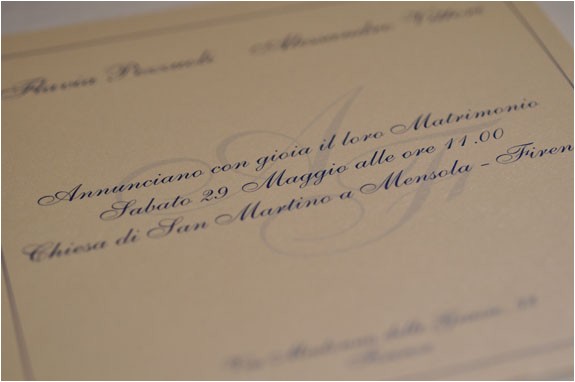 Flavia Alessandro
Annunciano con gioia il loro Matrimonio
Sabato 29 Maggio alle ore 11.00
Chiesa di San Martino a Mensola - Firen